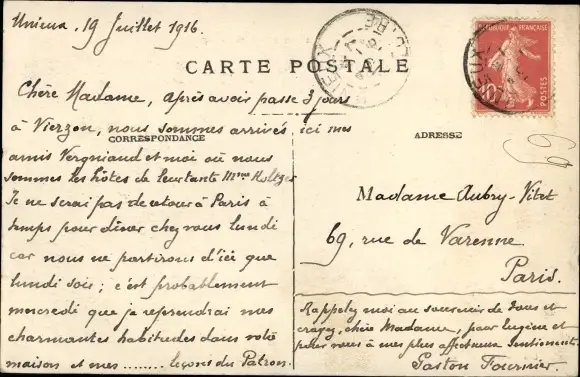 Unieux, 19 Juillet 1916.
CARTE POSTALE
REPUBLIQUE FRANÇAISE
10
Chère Madame, après avoir passé 3 jours
à Vierzon, nous sommes arrivés, ici mes
CORRESPONDANCE
amis Vergniaud et moi où nous
sommes les hôtes de leur tante Mme Holtzer
Je ne serai pas de retour à Paris à
temps pour dîner chez vous lundi
car nous ne partirons d'ici que
lundi soir; c'est probablement
mercredi que je reprendrai mes
charmantes habitudes dans votre
maison et mes ........ leçons du Patron.
ADRESSE
69
Madame Aubry-Vitet
69, rue de Varenne
Paris.
Rappelez moi au souvenir de tous et
croyez, chère Madame, pour Eugène et
pour vous à mes plus affectueux sentiments.
Gaston Fournier.